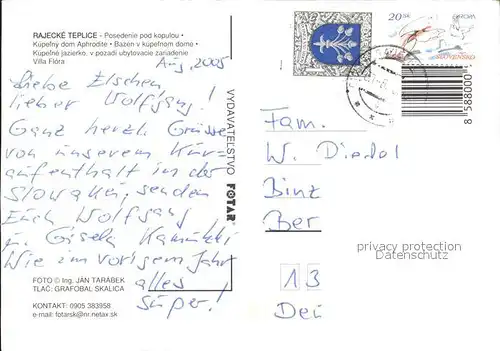 RAJECKÉ TEPLICE - Posedenie pod kopulou •
Kúpeľný dom Aphrodite • Bazén v kúpeľnom dome •
Kúpeľné jazierko, v pozadí ubytovacie zariadenie
Villa Flóra
Aug. 2005
Liebe Elschen,
lieber Wolfgang!
Ganz herzl. Grüsse
von unserem Kur-
aufenthalt in der
Slowakei, senden
Euch Wolfgang
u. Gisela
Wie im vorigem Jahr
alles
super!
FOTO © Ing. JÁN TARÁBEK
TLAČ: GRAFOBAL SKALICA
KONTAKT: 0905 383958
e-mail: fotarsk@nr.netax.sk
VYDAVATEĽSTVO FOTAR
20 Sk
EUROPA
SLOVENSKO
8 588000
Fam.
W. Diedel
Binz
Ber
privacy protection
Datenschutz
13
Deu